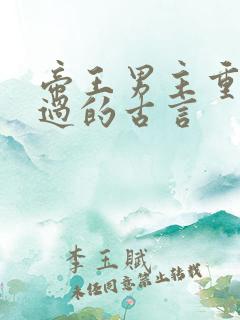 帝王男主重
过的古言
李玉赋
未经同意禁止转载